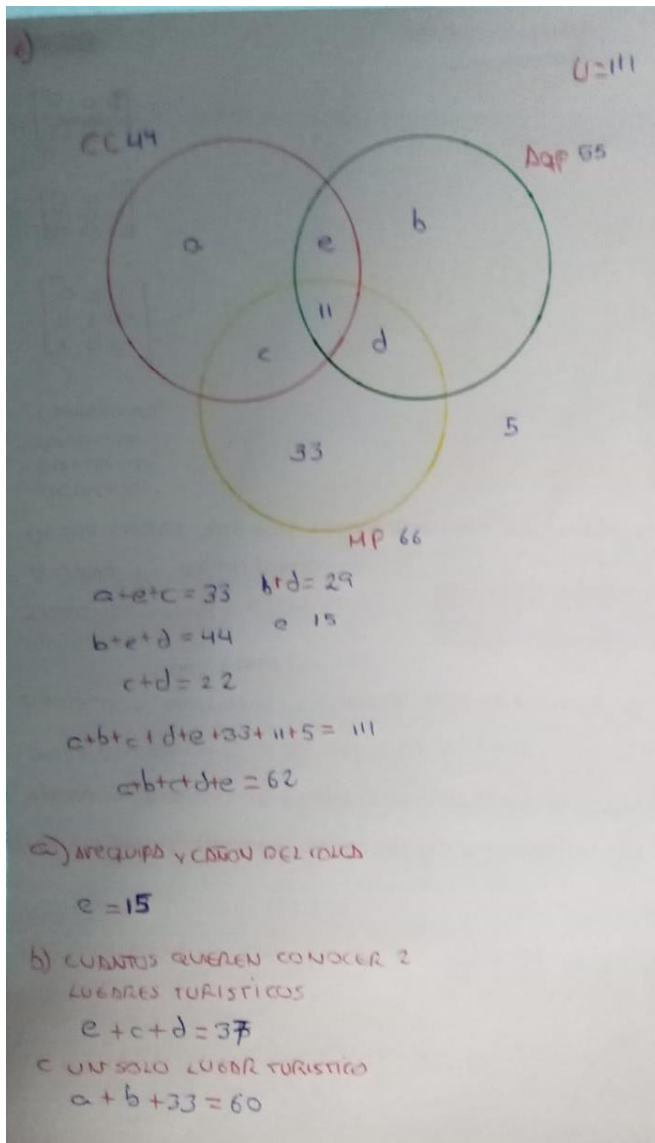 e)
U=111
CC 44
AQP 55
a
e
b
11
c
d
33
5
MP 66
a+e+c=33 b+d=29
b+e+d=44 e 15
c+d=22
a+b+c+d+e+33+11+5= 111
a+b+c+d+e=62
a) AREQUIPA Y CAÑON DEL COLCA
e=15
b) CUANTOS QUIEREN CONOCER 2
LUGARES TURISTICOS
e+c+d=37
C UN SOLO LUGAR TURISTICO
a+b+33=60